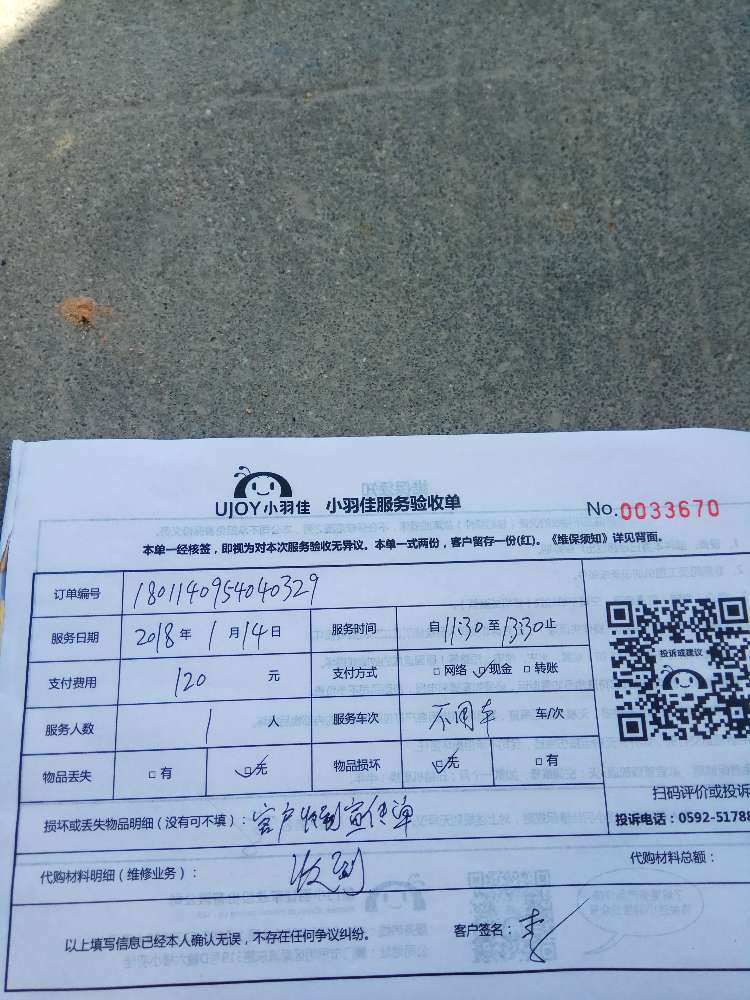 UJOY小羽佳 小羽佳服务验收单 No.0033670
本单一经核签，即视为对本次服务验收无异议。本单一式两份，客户留存一份(红)。《维保须知》详见背面。
订单编号 1801140954040329
服务日期 2018 年 1 月 14 日 服务时间 自 11:30 至 13:30 止
支付费用 120 元 支付方式 □网络 ☑现金 □转账
投诉或建议
服务人数 1 人 服务车次 不用车 车/次
物品丢失 □有 ☑无 物品损坏 ☑无 □有
扫码评价或投诉
损坏或丢失物品明细（没有可不填）：客户收到宣传单
投诉电话：0592-51788
代购材料明细（维修业务）： 收到 代购材料总额：
以上填写信息已经本人确认无误，不存在任何争议纠纷。 客户签名：